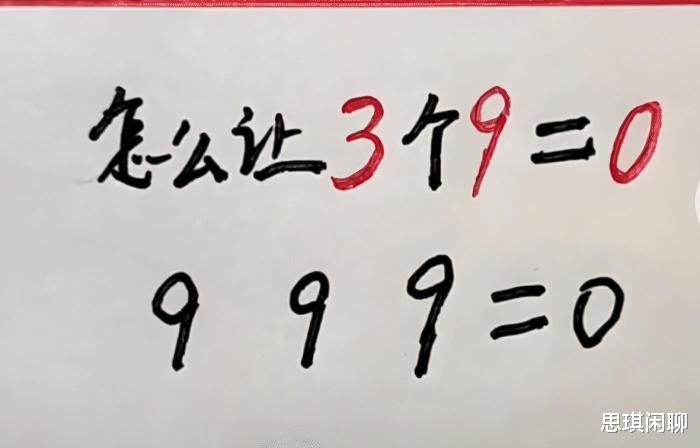 怎么让3个9=0
9 9 9=0
思琪闲聊